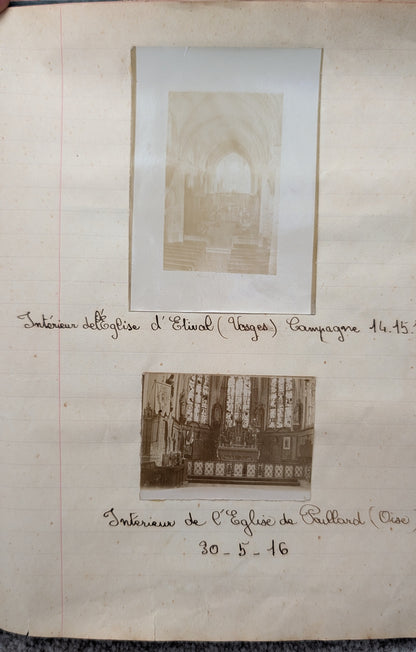 Intérieur de l'Église d'Etival (Vosges) Campagne 14.15.
Intérieur de l'Eglise de Paillard (Oise)
30-5-16